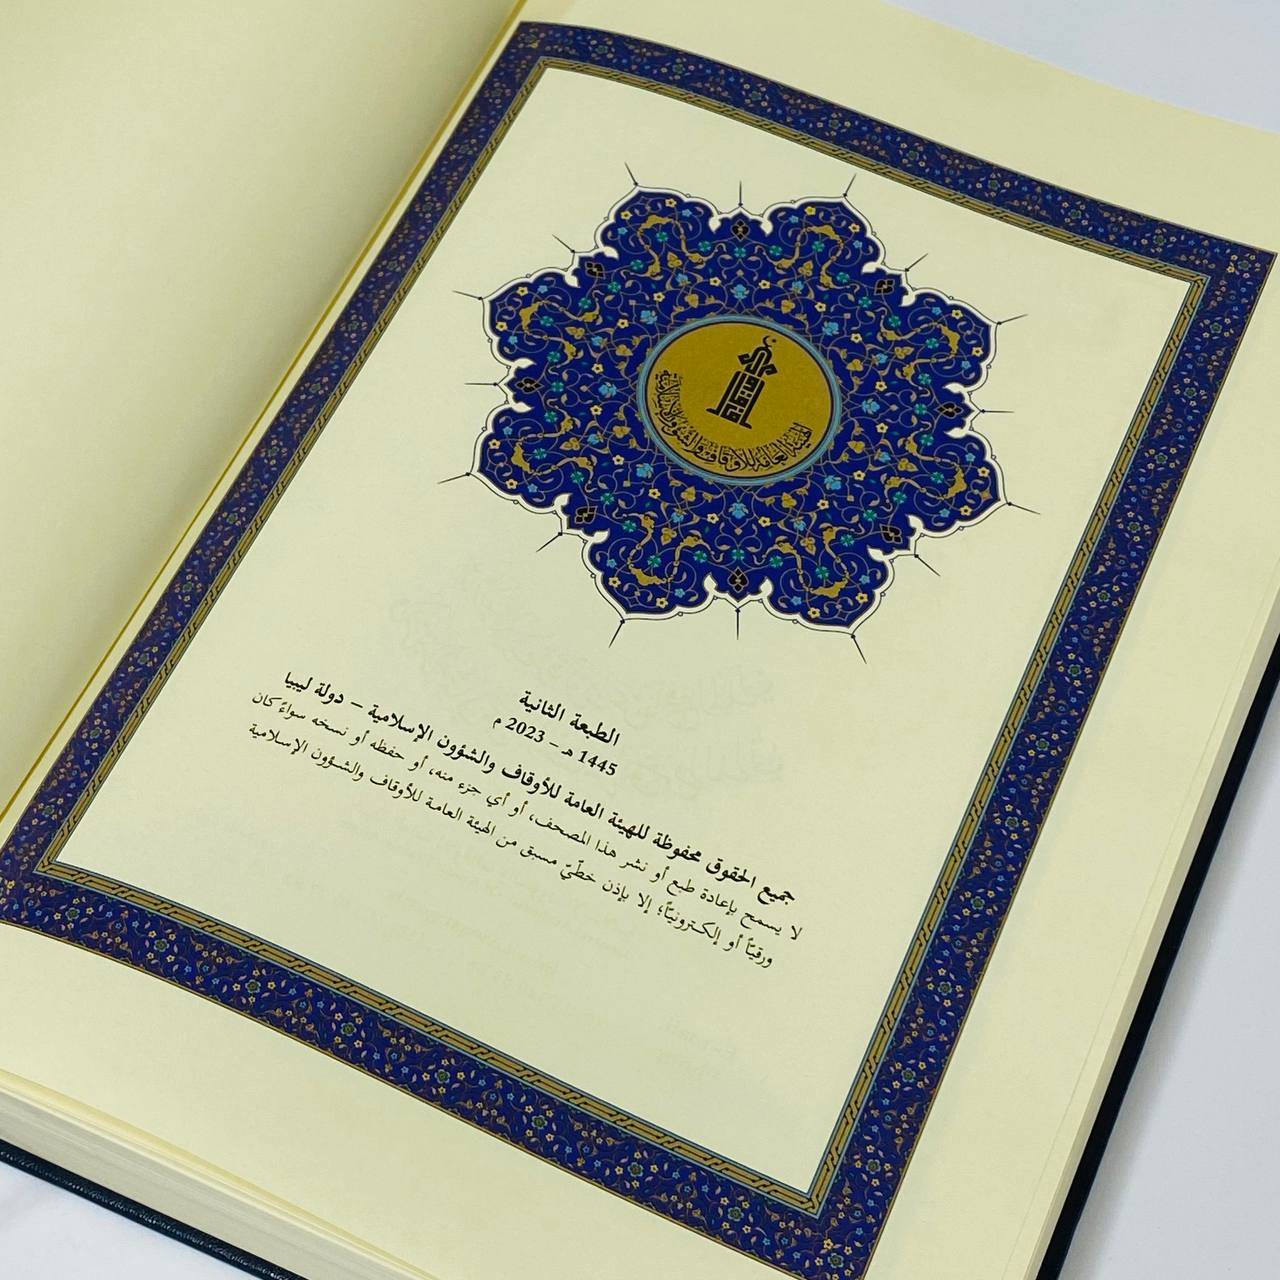 الهيئة العامة للأوقاف والشؤون الإسلامية
الطبعة الثانية
1445 هـ – 2023 م
جميع الحقوق محفوظة للهيئة العامة للأوقاف والشؤون الإسلامية – دولة ليبيا
لا يسمح بإعادة طبع أو نشر هذا المصحف، أو أي جزء منه، أو حفظه أو نسخه سواءً كان
ورقيّاً أو إلكترونيّاً؛ إلا بإذن خطّيّ مسبق من الهيئة العامة للأوقاف والشؤون الإسلامية